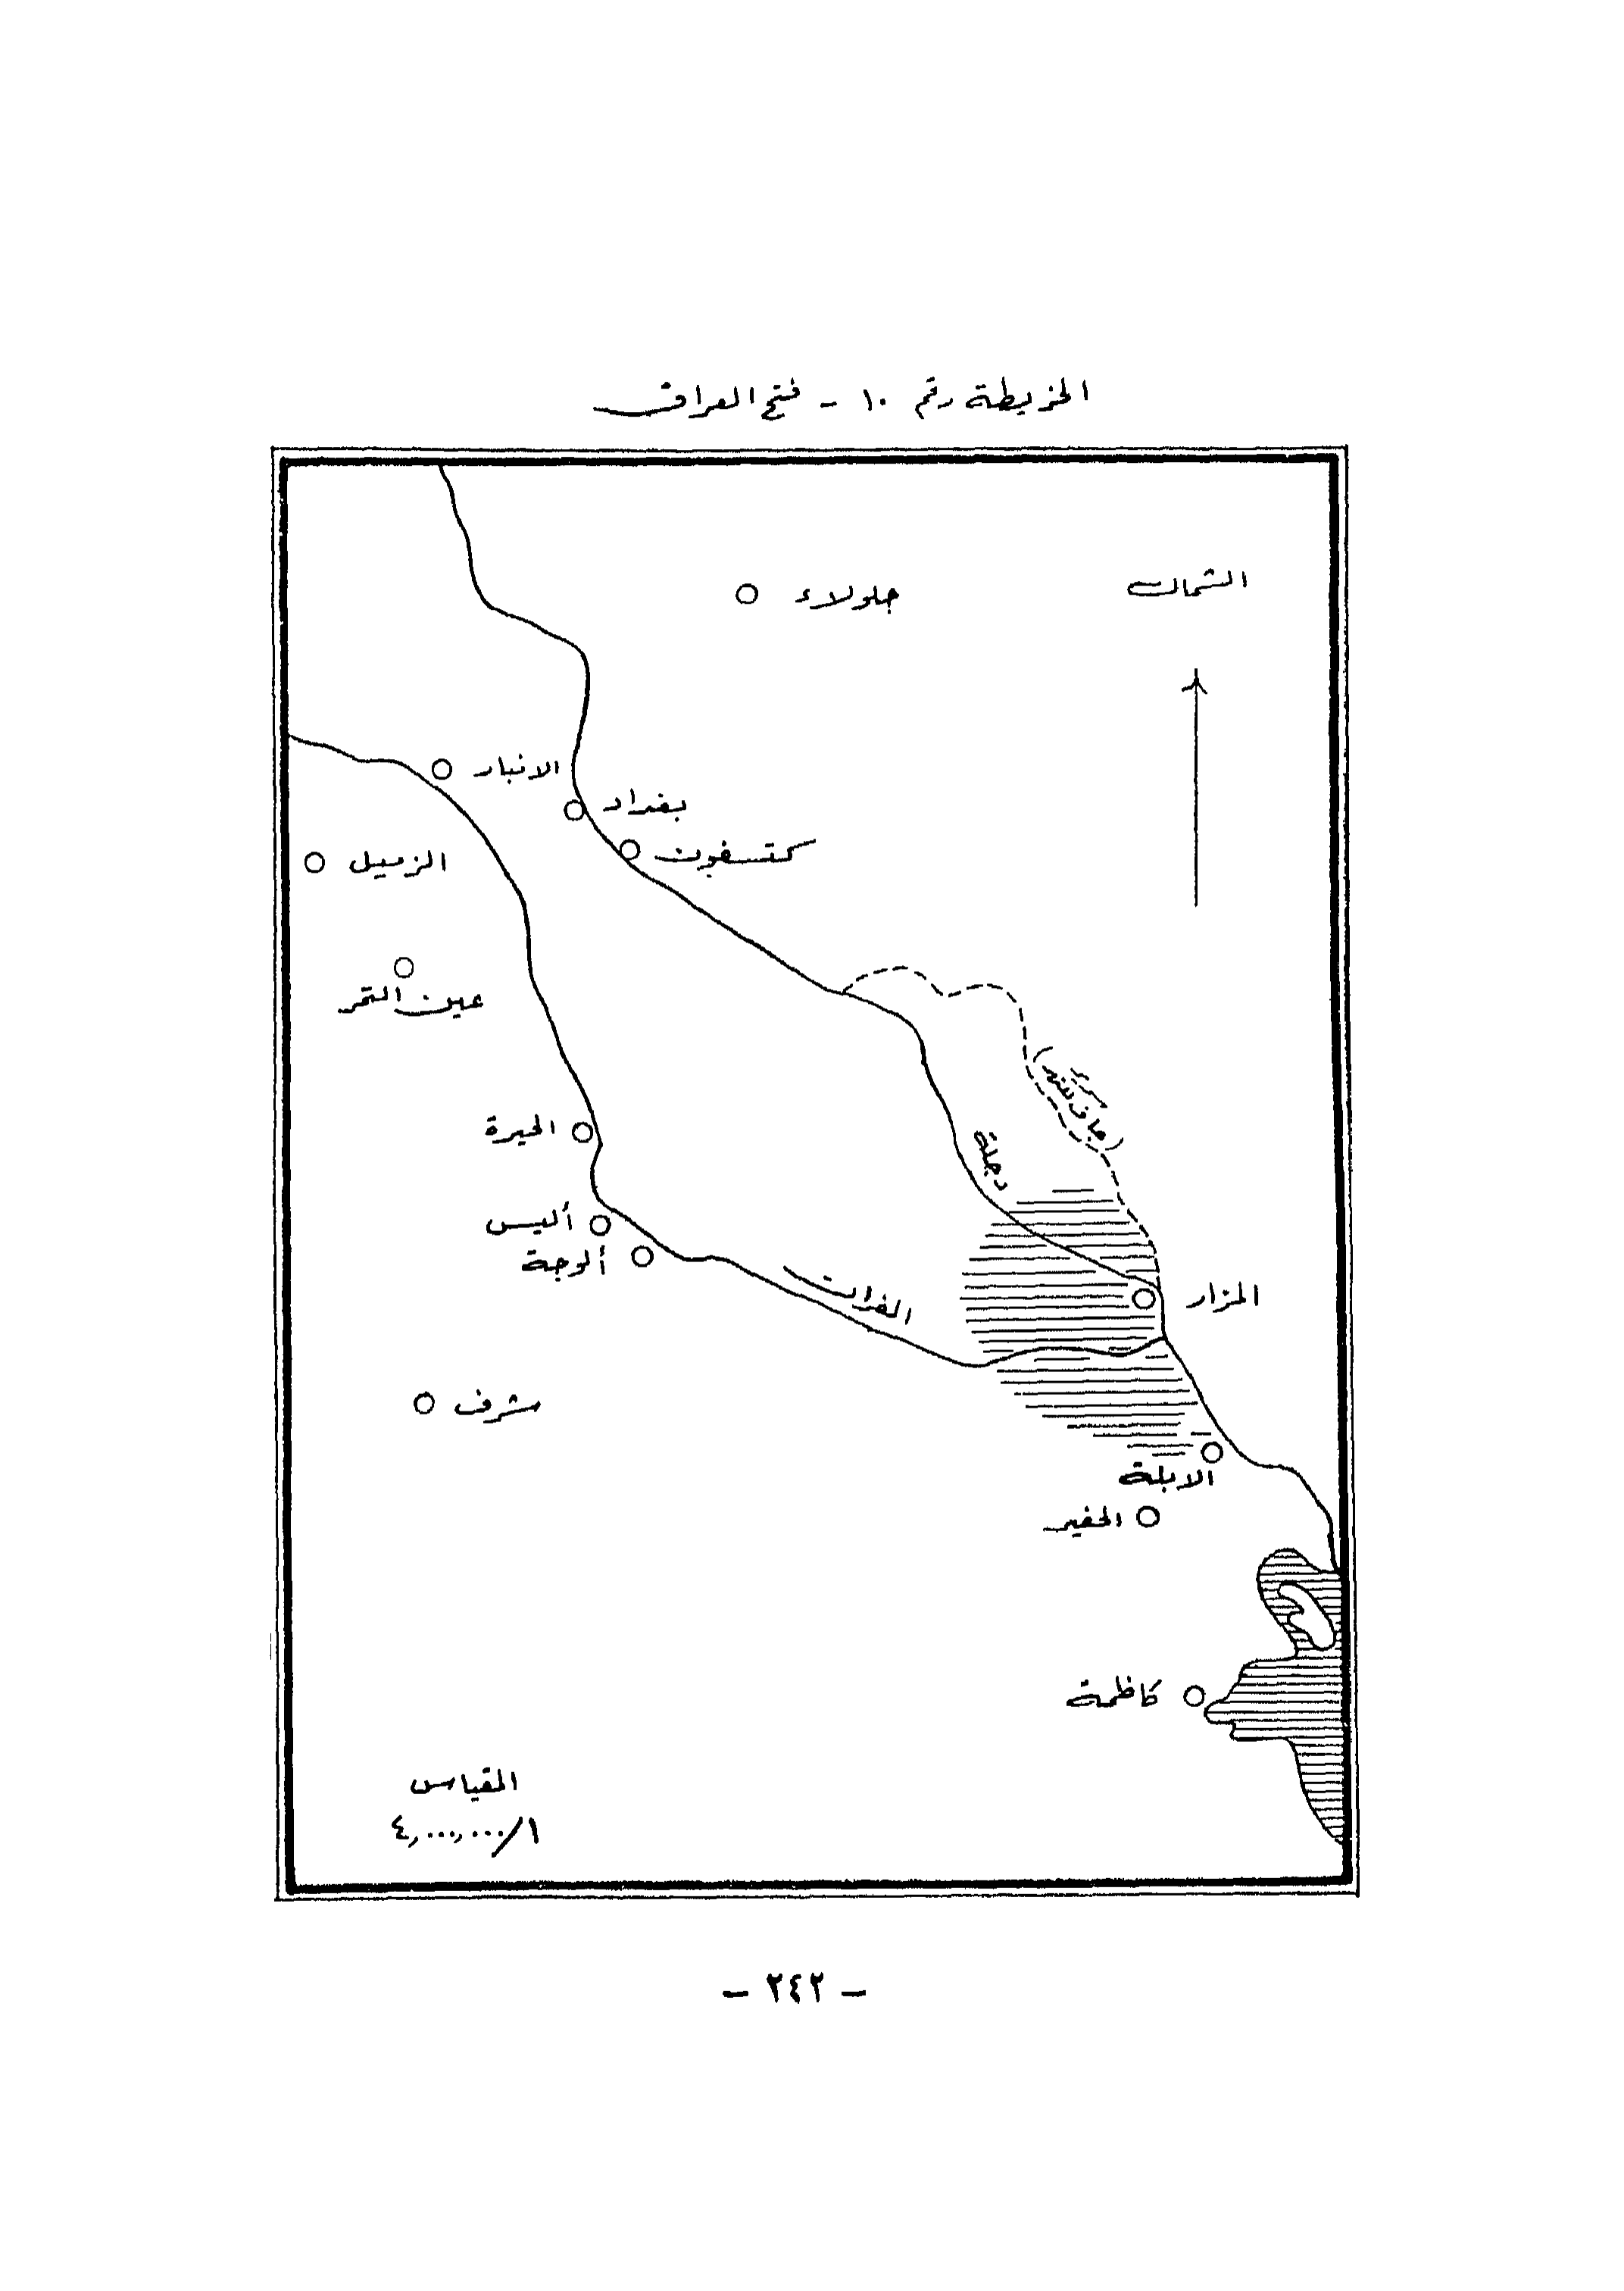 الخريطة رقم ١٠ - فتح العراق
الشمال
جلولاء
الانبار
بغداد
كتسفون
الزميل
عين التمر
(مجاف
دجلة
الحيرة
أليس
ألوجة
الفرات
المزار
شرف
الابلة
الحفير
كاظمة
المقياس
١/٤,٠٠٠,٠٠٠
- ٢٤٢ -